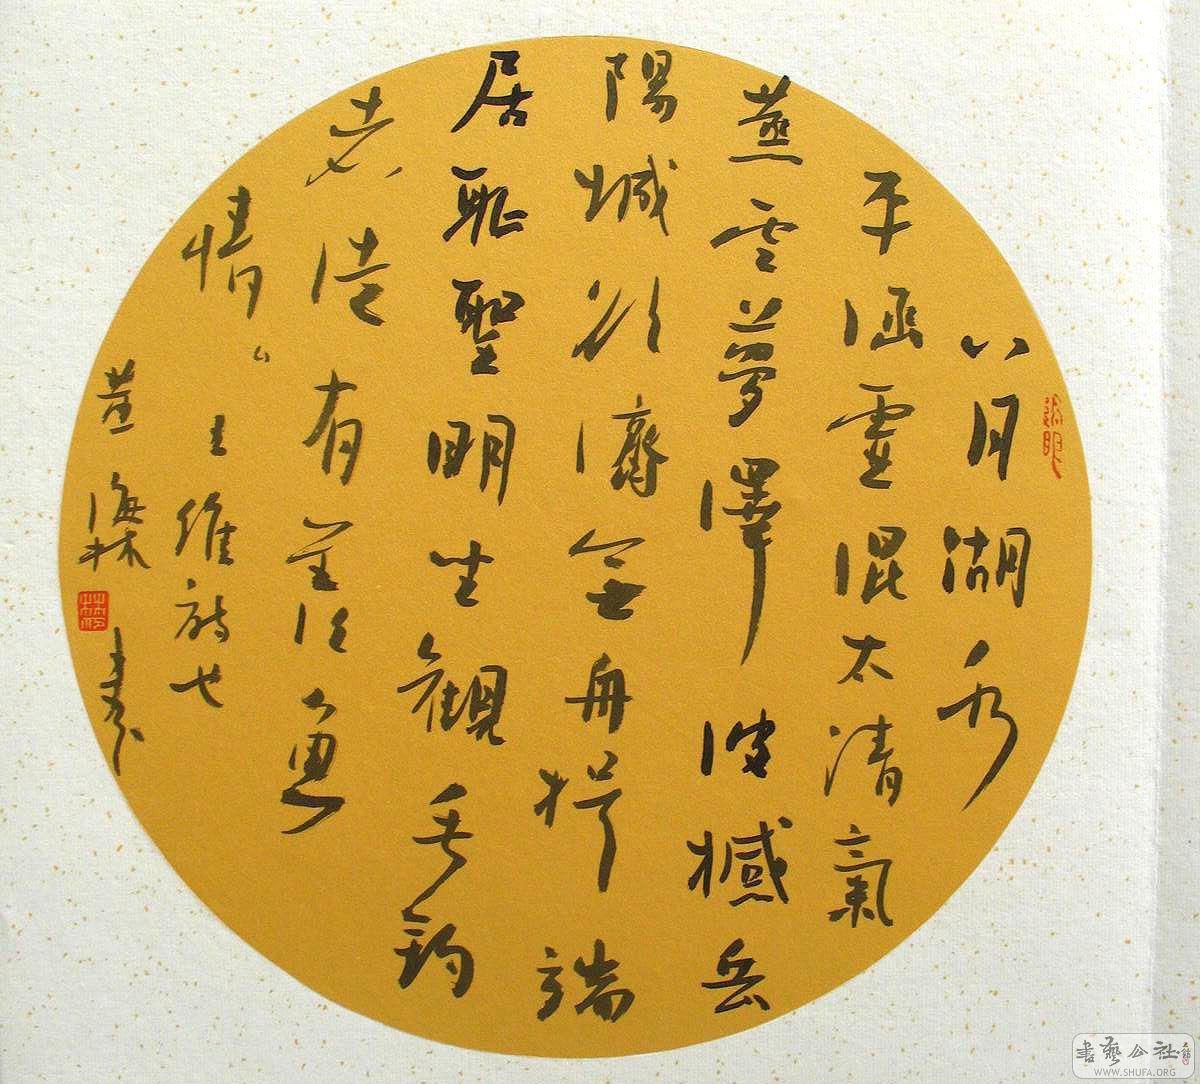 八月湖水
平涵虛混太清氣
蒸雲夢澤波撼岳
陽城欲濟無舟楫端
居耻聖明坐觀垂釣
者徒有羡魚
情 王維詩也
董海林書
書藝公社
WWW.SHUFA.ORG